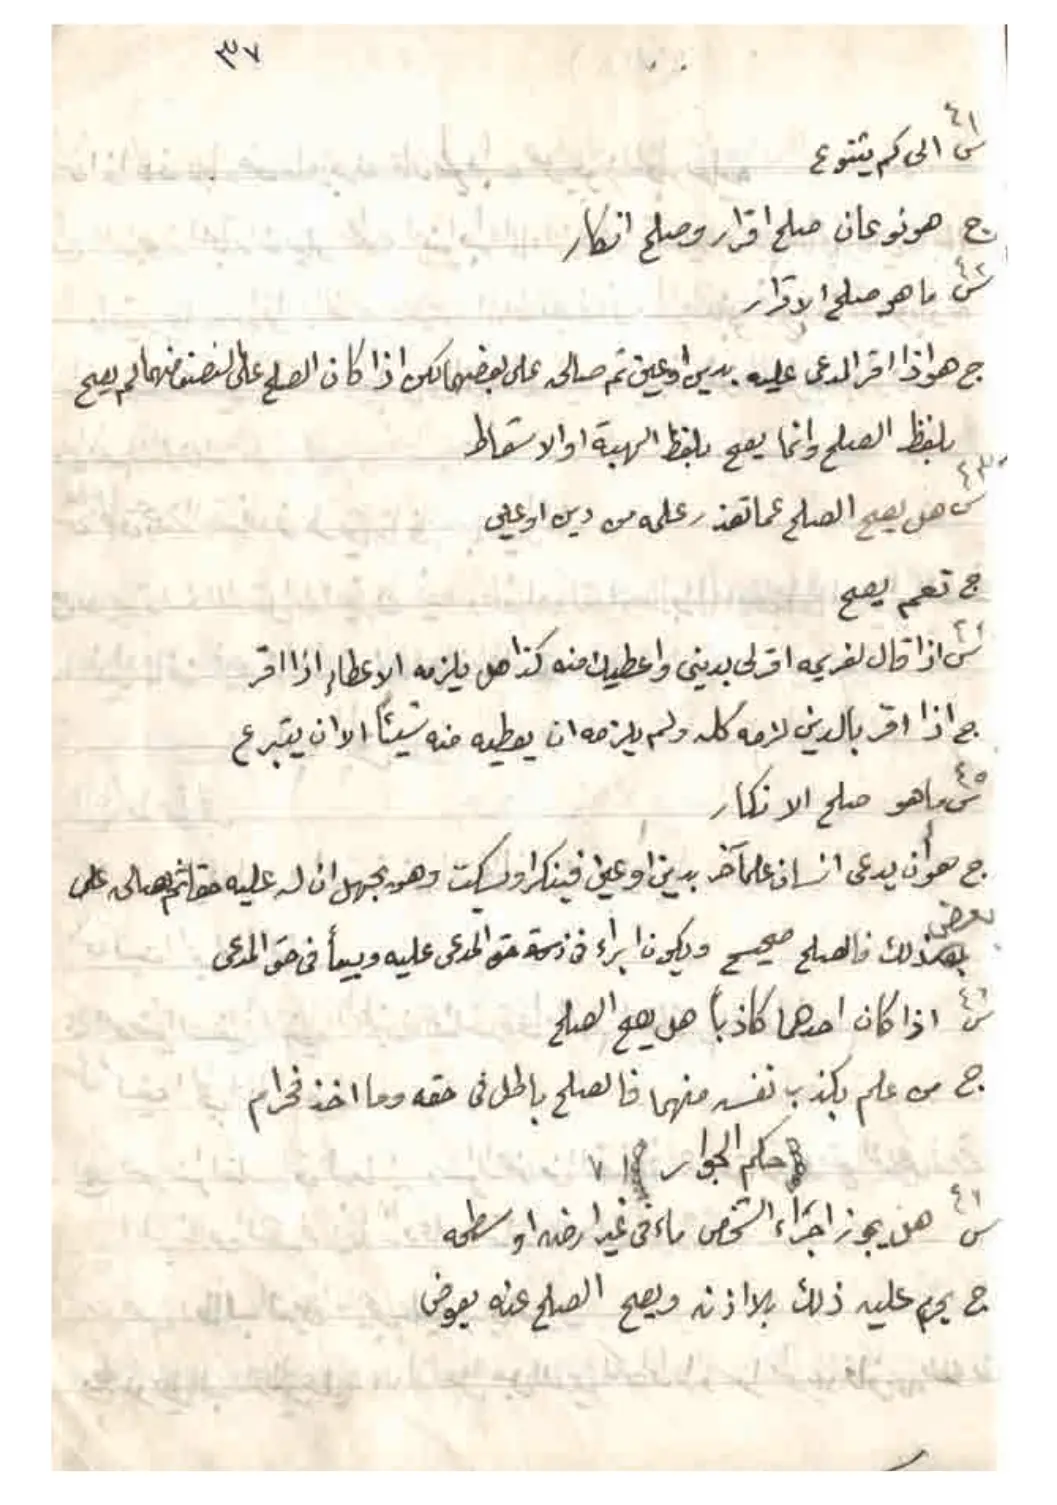 ٣٧
س٤١ الى كم يتنوع
ج هو نوعان صلح اقرار وصلح انكار
س٤٢ ما هو صلح الاقرار
ج هو اذا اقر المدعى عليه بدين او عين ثم صالحه على بعضهما لكن اذا كان الصلح على النصف منهما لم يصح
بلفظ الصلح وانما يصح بلفظ الهبة او الاسقاط
س٤٣ هل يصح الصلح عما تعذر علمه من دين او عين
ج نعم يصح
س اذا قال لغريمه اقر لي بديني واعطيك منه كذا هل يلزمه الاعطاء اذا اقر
ج اذا اقر بالدين لزمه كله ولم يلزمه ان يعطيه منه شيئاً الا ان يتبرع
س٤٥ ما هو صلح الانكار
ج هو أن يدعى انسان على آخر بدين او عين فينكر او يسكت وهو يجهل ان له عليه حقا ثم يصالحه على
بعض ذلك فالصلح صحيح ويكون ابراء في حق المدعى عليه وبيعاً في حق المدعى
س٤٦ اذا كان احدهما كاذباً هل يصح الصلح
ج من علم بكذب نفسه منهما فالصلح باطل في حقه وما اخذ فحرام
حكم الجوار ٧
س٤٦ هل يجوز اجراء الشخص ماء في غير ارضه او سطحه
ج يحرم عليه ذلك بلا اذنه ويصح الصلح عنه بعوض